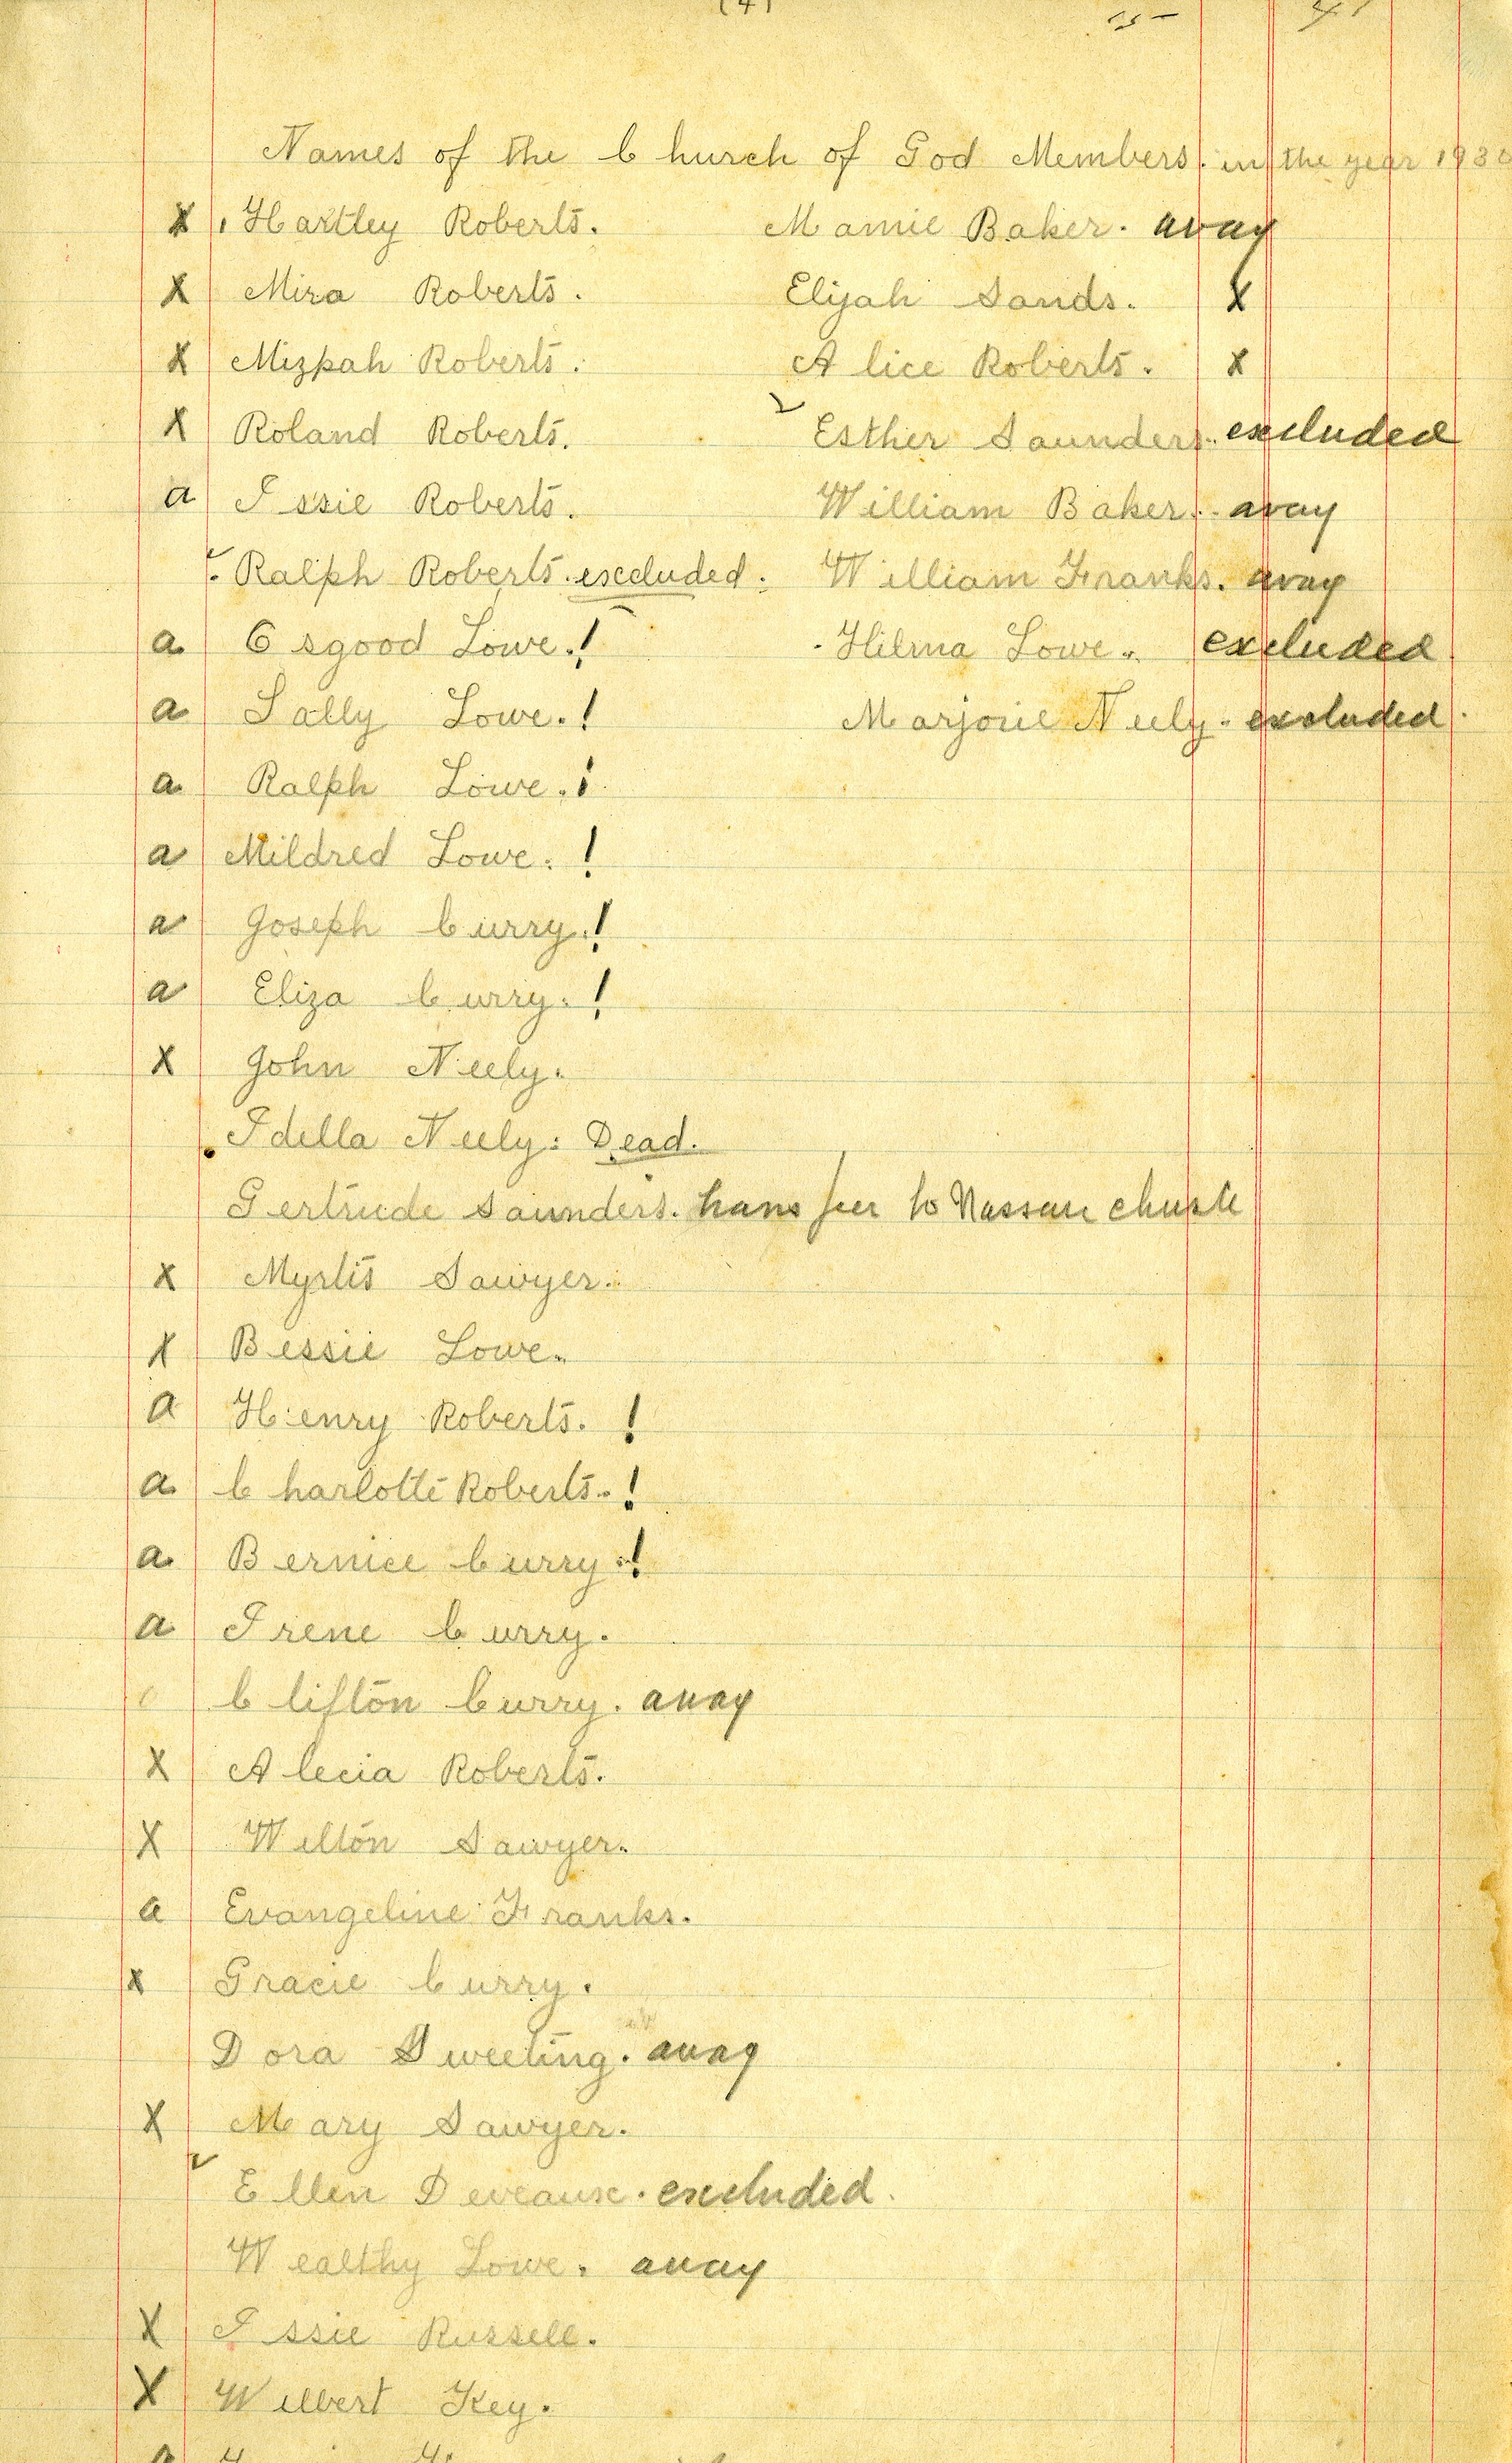 (4)
Names of the Church of God Members. in the year 1930
X Hartley Roberts.
X Mira Roberts.
X Mizpah Roberts.
X Roland Roberts.
a Issie Roberts.
Ralph Roberts. escluded.
a Osgood Lowe. !
a Sally Lowe. !
a Ralph Lowe. !
a Mildred Lowe. !
a Joseph Curry. !
a Eliza Curry. !
X John Neely.
Idella Neely: Dead.
Gertrude Saunders. transfer to Nassau
X Myrtis Sawyer.
X Bessie Lowe.
a Henry Roberts. !
a Charlotte Roberts. !
a Bernice Curry. !
a Irene Curry.
Clifton Curry. away
X Alecia Roberts.
X Wilton Sawyer.
a Evangeline Franks.
x Gracie Curry.
Dora Sweeting. away
X Mary Sawyer.
Ellen Deveause. excluded.
Wealthy Lowe. away
X Issie Russell.
X Wilbert Key.
Mamie Baker. away
Elijah Sands. X
Alice Roberts. x
Esther Saunders. excluded
William Baker. away
William Franks. away
Hilma Lowe. excluded
Marjorie Neely. excluded.